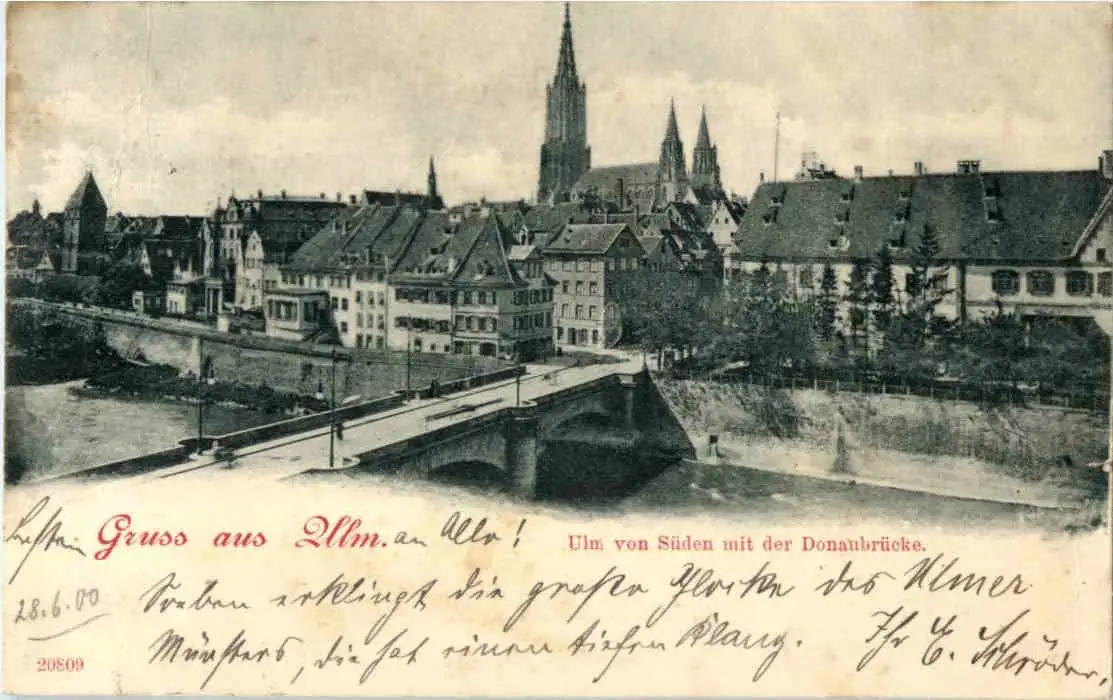 Besten Gruss aus Ulm. an Alle!
Ulm von Süden mit der Donaubrücke.
28.6.00
Soeben erklingt die große Glocke des Ulmer
Münsters, die hat einen tiefen Klang.
Ihr E. Schröder.
20809